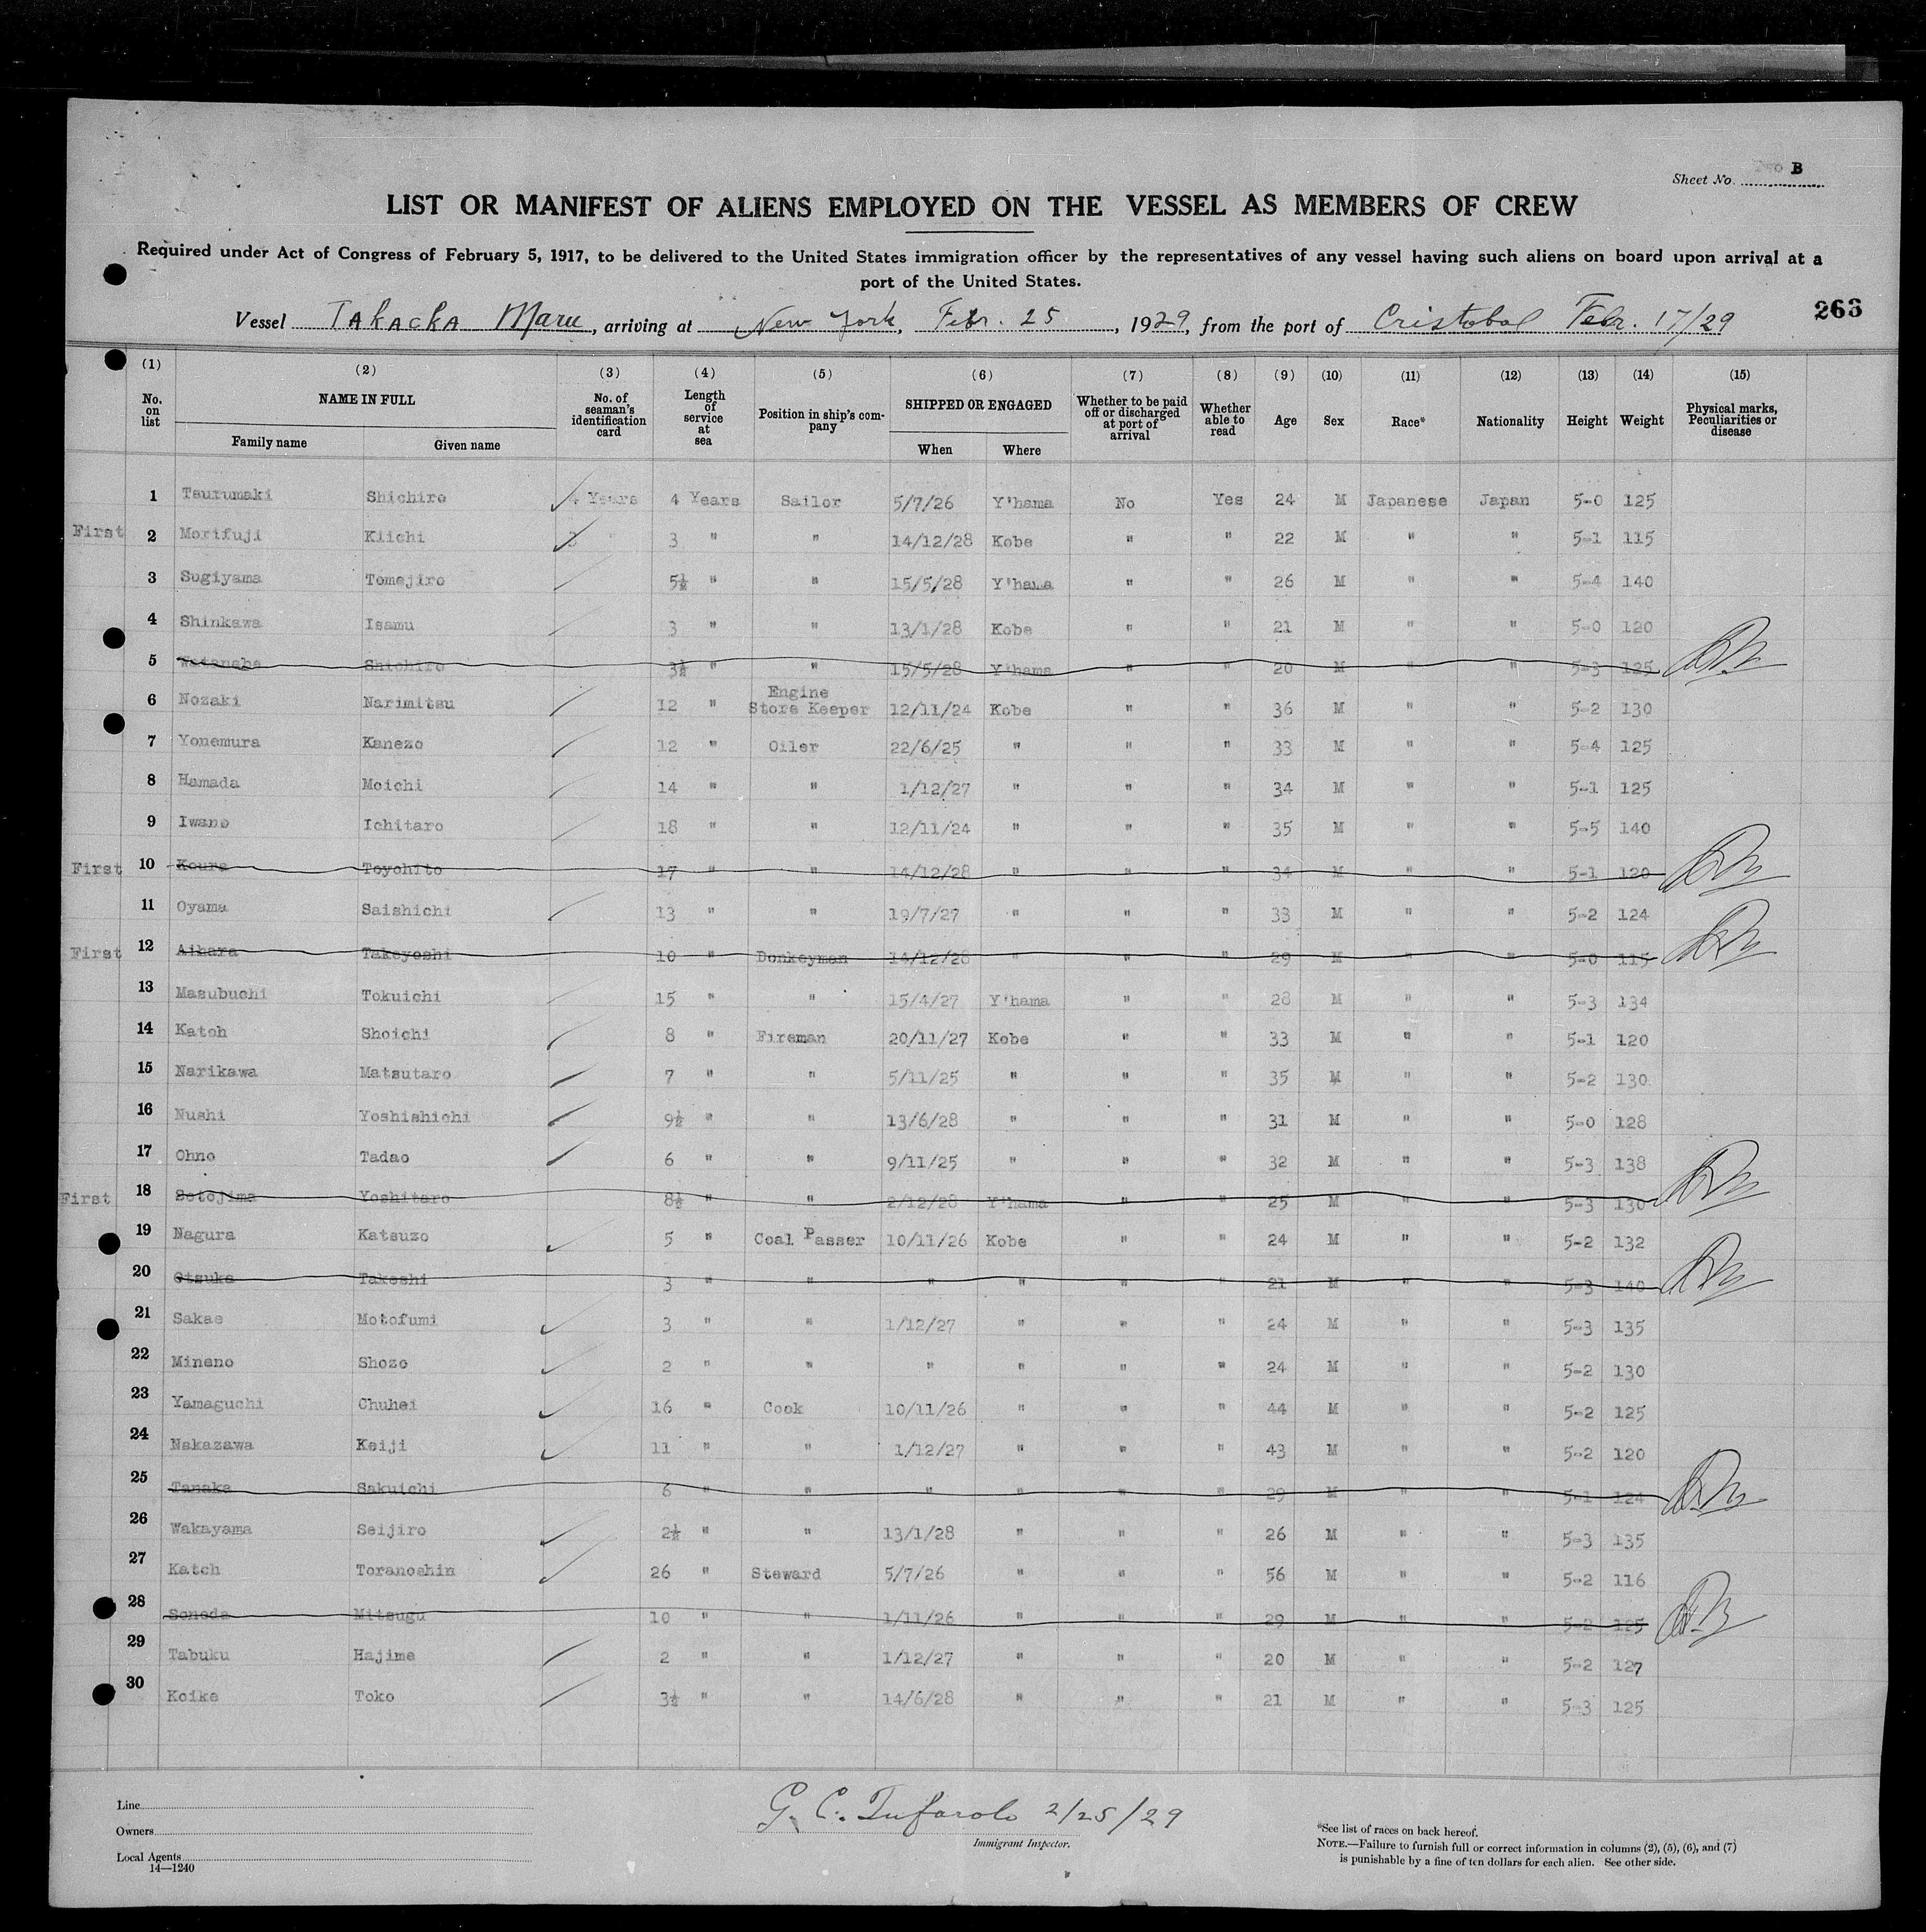 Sheet No. B
LIST OR MANIFEST OF ALIENS EMPLOYED ON THE VESSEL AS MEMBERS OF CREW
Required under Act of Congress of February 5, 1917, to be delivered to the United States immigration officer by the representatives of any vessel having such aliens on board upon arrival at a
port of the United States.
Vessel Takaoka Maru, arriving at New York, Febr. 25, 1929, from the port of Cristobal Febr. 17/29
263
(1) (2) (3) (4) (5) (6) (7) (8) (9) (10) (11) (12) (13) (14) (15)
No. on list NAME IN FULL Family name Given name No. of seaman's identification card Length of service at sea Position in ship's company SHIPPED OR ENGAGED When Where Whether to be paid off or discharged at port of arrival Whether able to read Age Sex Race* Nationality Height Weight Physical marks, Peculiarities or disease
1 Tsurumaki Shichiro 4 Years 4 Years Sailor 5/7/26 Y'hama No Yes 24 M Japanese Japan 5-0 125
First 2 Morifuji Kiichi 3 " 3 " " 14/12/28 Kobe " " 22 M " " 5-1 115
3 Sugiyama Tomejiro 5½ " " 15/5/28 Y'hama " " 26 M " " 5-4 140
4 Shinkawa Isamu 3 " " 13/1/28 Kobe " " 21 M " " 5-0 120
5 Watanabe Shichiro 3½ " " 15/5/28 Y'hama " " 20 M " " 5-3 125
6 Nozaki Narimitsu 12 " Engine Store Keeper 12/11/24 Kobe " " 36 M " " 5-2 130
7 Yonemura Kanezo 12 " Oiler 22/6/25 " " " 33 M " " 5-4 125
8 Hamada Moichi 14 " " 1/12/27 " " " 34 M " " 5-1 125
9 Iwano Ichitaro 18 " " 12/11/24 " " " 35 M " " 5-5 140
First 10 Koura Toyohito 17 " " 14/12/28 " " " 34 M " " 5-1 120
11 Oyama Saishichi 13 " " 19/7/27 " " " 33 M " " 5-2 124
First 12 Aihara Takeyoshi 10 " Donkeyman 14/12/28 " " " 29 M " " 5-0 115
13 Masubuchi Tokuichi 15 " " 15/4/27 Y'hama " " 28 M " " 5-3 134
14 Katoh Shoichi 8 " Fireman 20/11/27 Kobe " " 33 M " " 5-1 120
15 Narikawa Matsutaro 7 " " 5/11/25 " " " 35 M " " 5-2 130
16 Nushi Yoshishichi 9½ " " 13/6/28 " " " 31 M " " 5-0 128
17 Ohno Tadao 6 " " 9/11/25 " " " 32 M " " 5-3 138
First 18 Sotojima Yoshitaro 8½ " " 2/12/28 Y'hama " " 25 M " " 5-3 130
19 Nagura Katsuzo 5 " Coal Passer 10/11/26 Kobe " " 24 M " " 5-2 132
20 Otsuka Takeshi 3 " " " " " " 21 M " " 5-3 140
21 Sakae Motofumi 3 " " 1/12/27 " " " 24 M " " 5-3 135
22 Mineno Shozo 2 " " " " " " 24 M " " 5-2 130
23 Yamaguchi Chuhei 16 " Cook 10/11/26 " " " 44 M " " 5-2 125
24 Nakazawa Keiji 11 " " 1/12/27 " " " 43 M " " 5-2 120
25 Tanaka Sakuichi 6 " " " " " " 29 M " " 5-1 124
26 Wakayama Seijiro 2½ " " 13/1/28 " " " 26 M " " 5-3 135
27 Katoh Toranoshin 26 " Steward 5/7/26 " " " 56 M " " 5-2 116
28 Sonoda Mitsugu 10 " " 1/11/26 " " " 29 M " " 5-2 125
29 Tabuku Hajime 2 " " 1/12/27 " " " 20 M " " 5-2 127
30 Koike Toko 3½ " " 14/6/28 " " " 21 M " " 5-3 125
Line
Owners
Local Agents
14—1240
G. C. Tufarolo 2/25/29
Immigrant Inspector.
*See list of races on back hereof.
NOTE.—Failure to furnish full or correct information in columns (2), (5), (6), and (7)
is punishable by a fine of ten dollars for each alien. See other side.